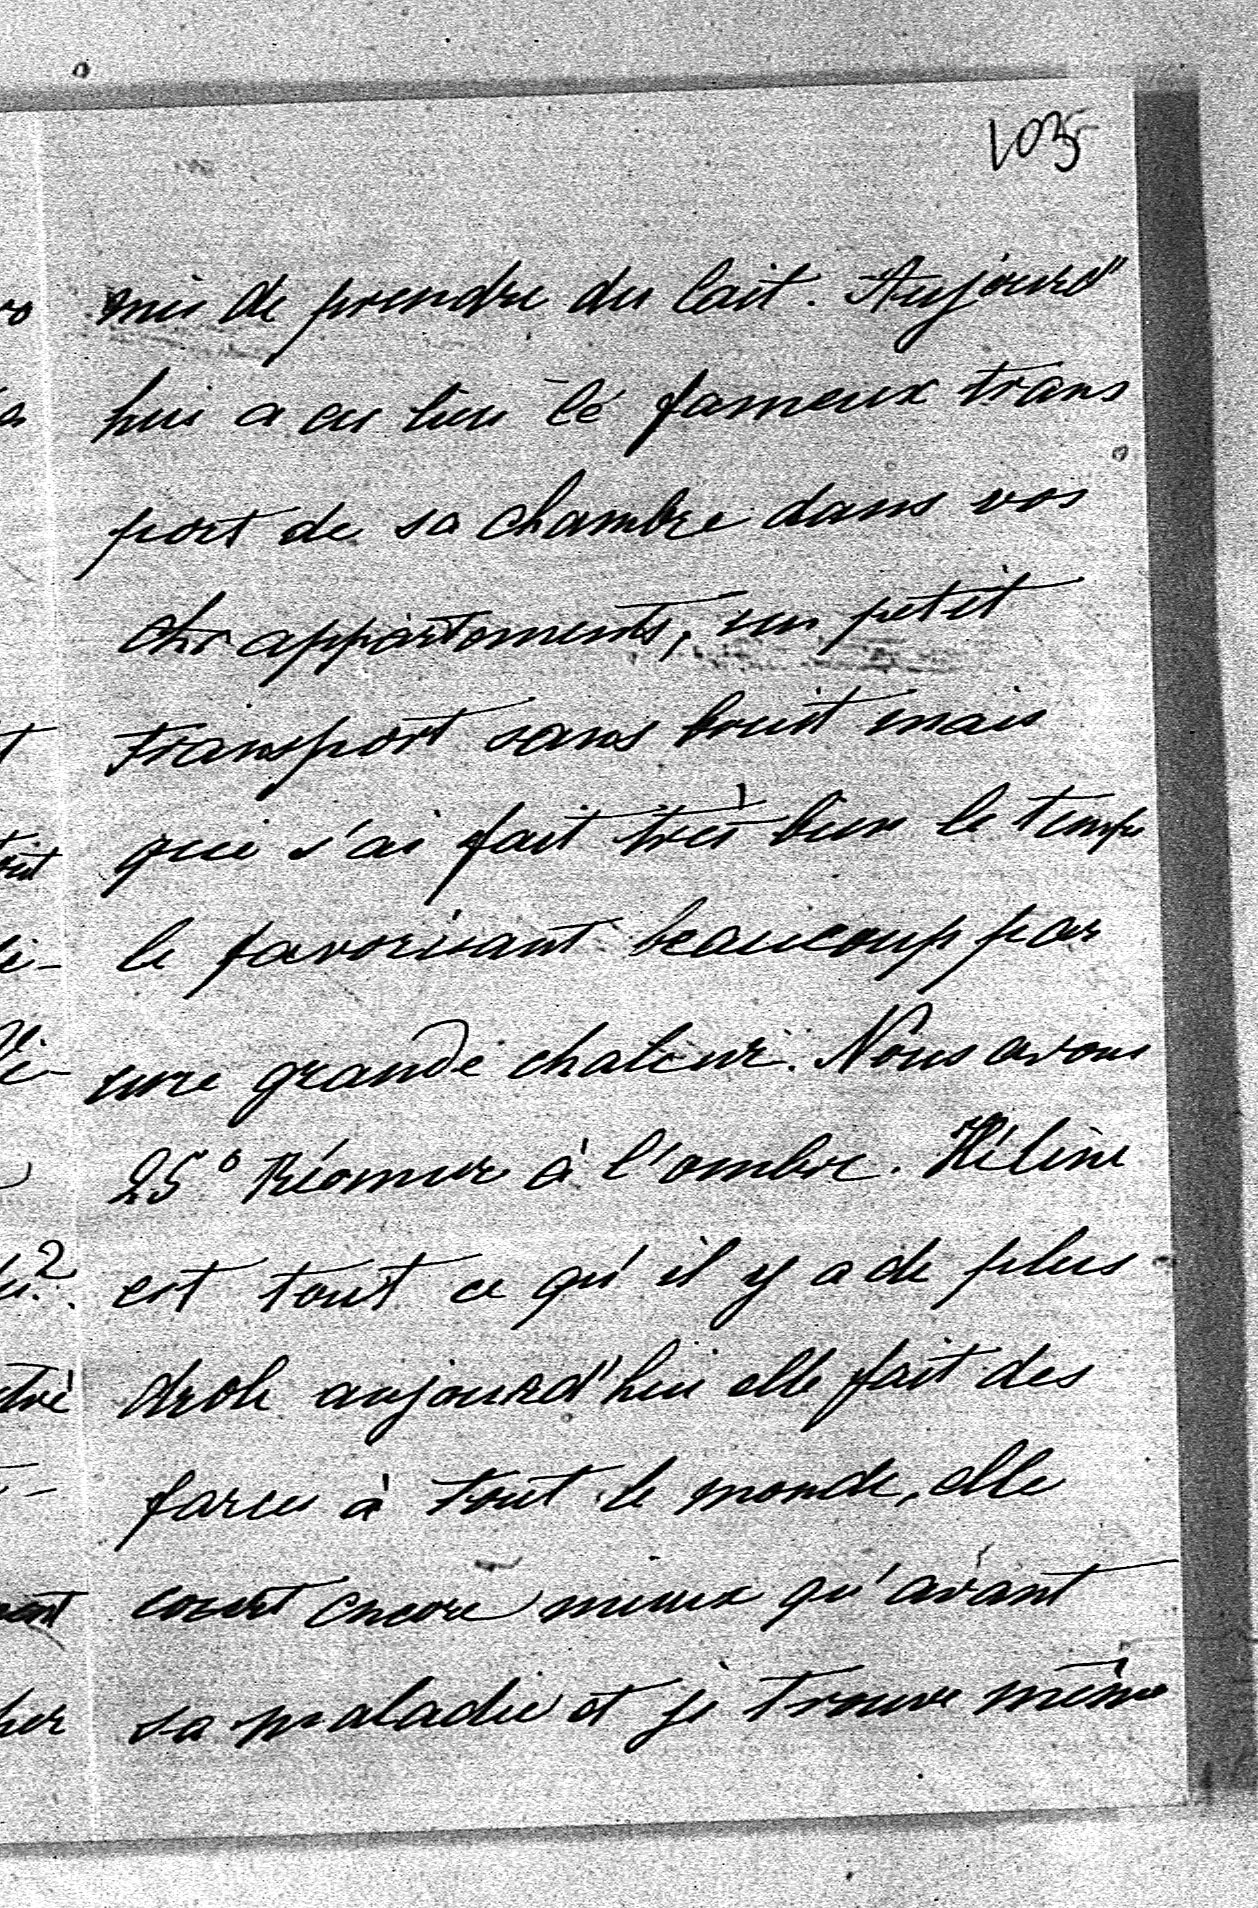 1035
mis de prendre du lait. Aujourd'
hui a eu lieu le fameux trans
port de sa chambre dans vos
chr appartements, un petit
transport sans bruit mais
qui s'ai fait très bien le temps
le favorisant beaucoup par
une grande chaleur. Nous avons
25° Réomur à l'ombre. Hélène
est tout ce qu'il y a de plus
drole aujourd'hui elle fait des
farces à tout le monde, elle
court encore mieux qu'avant
sa maladie et je trouve même